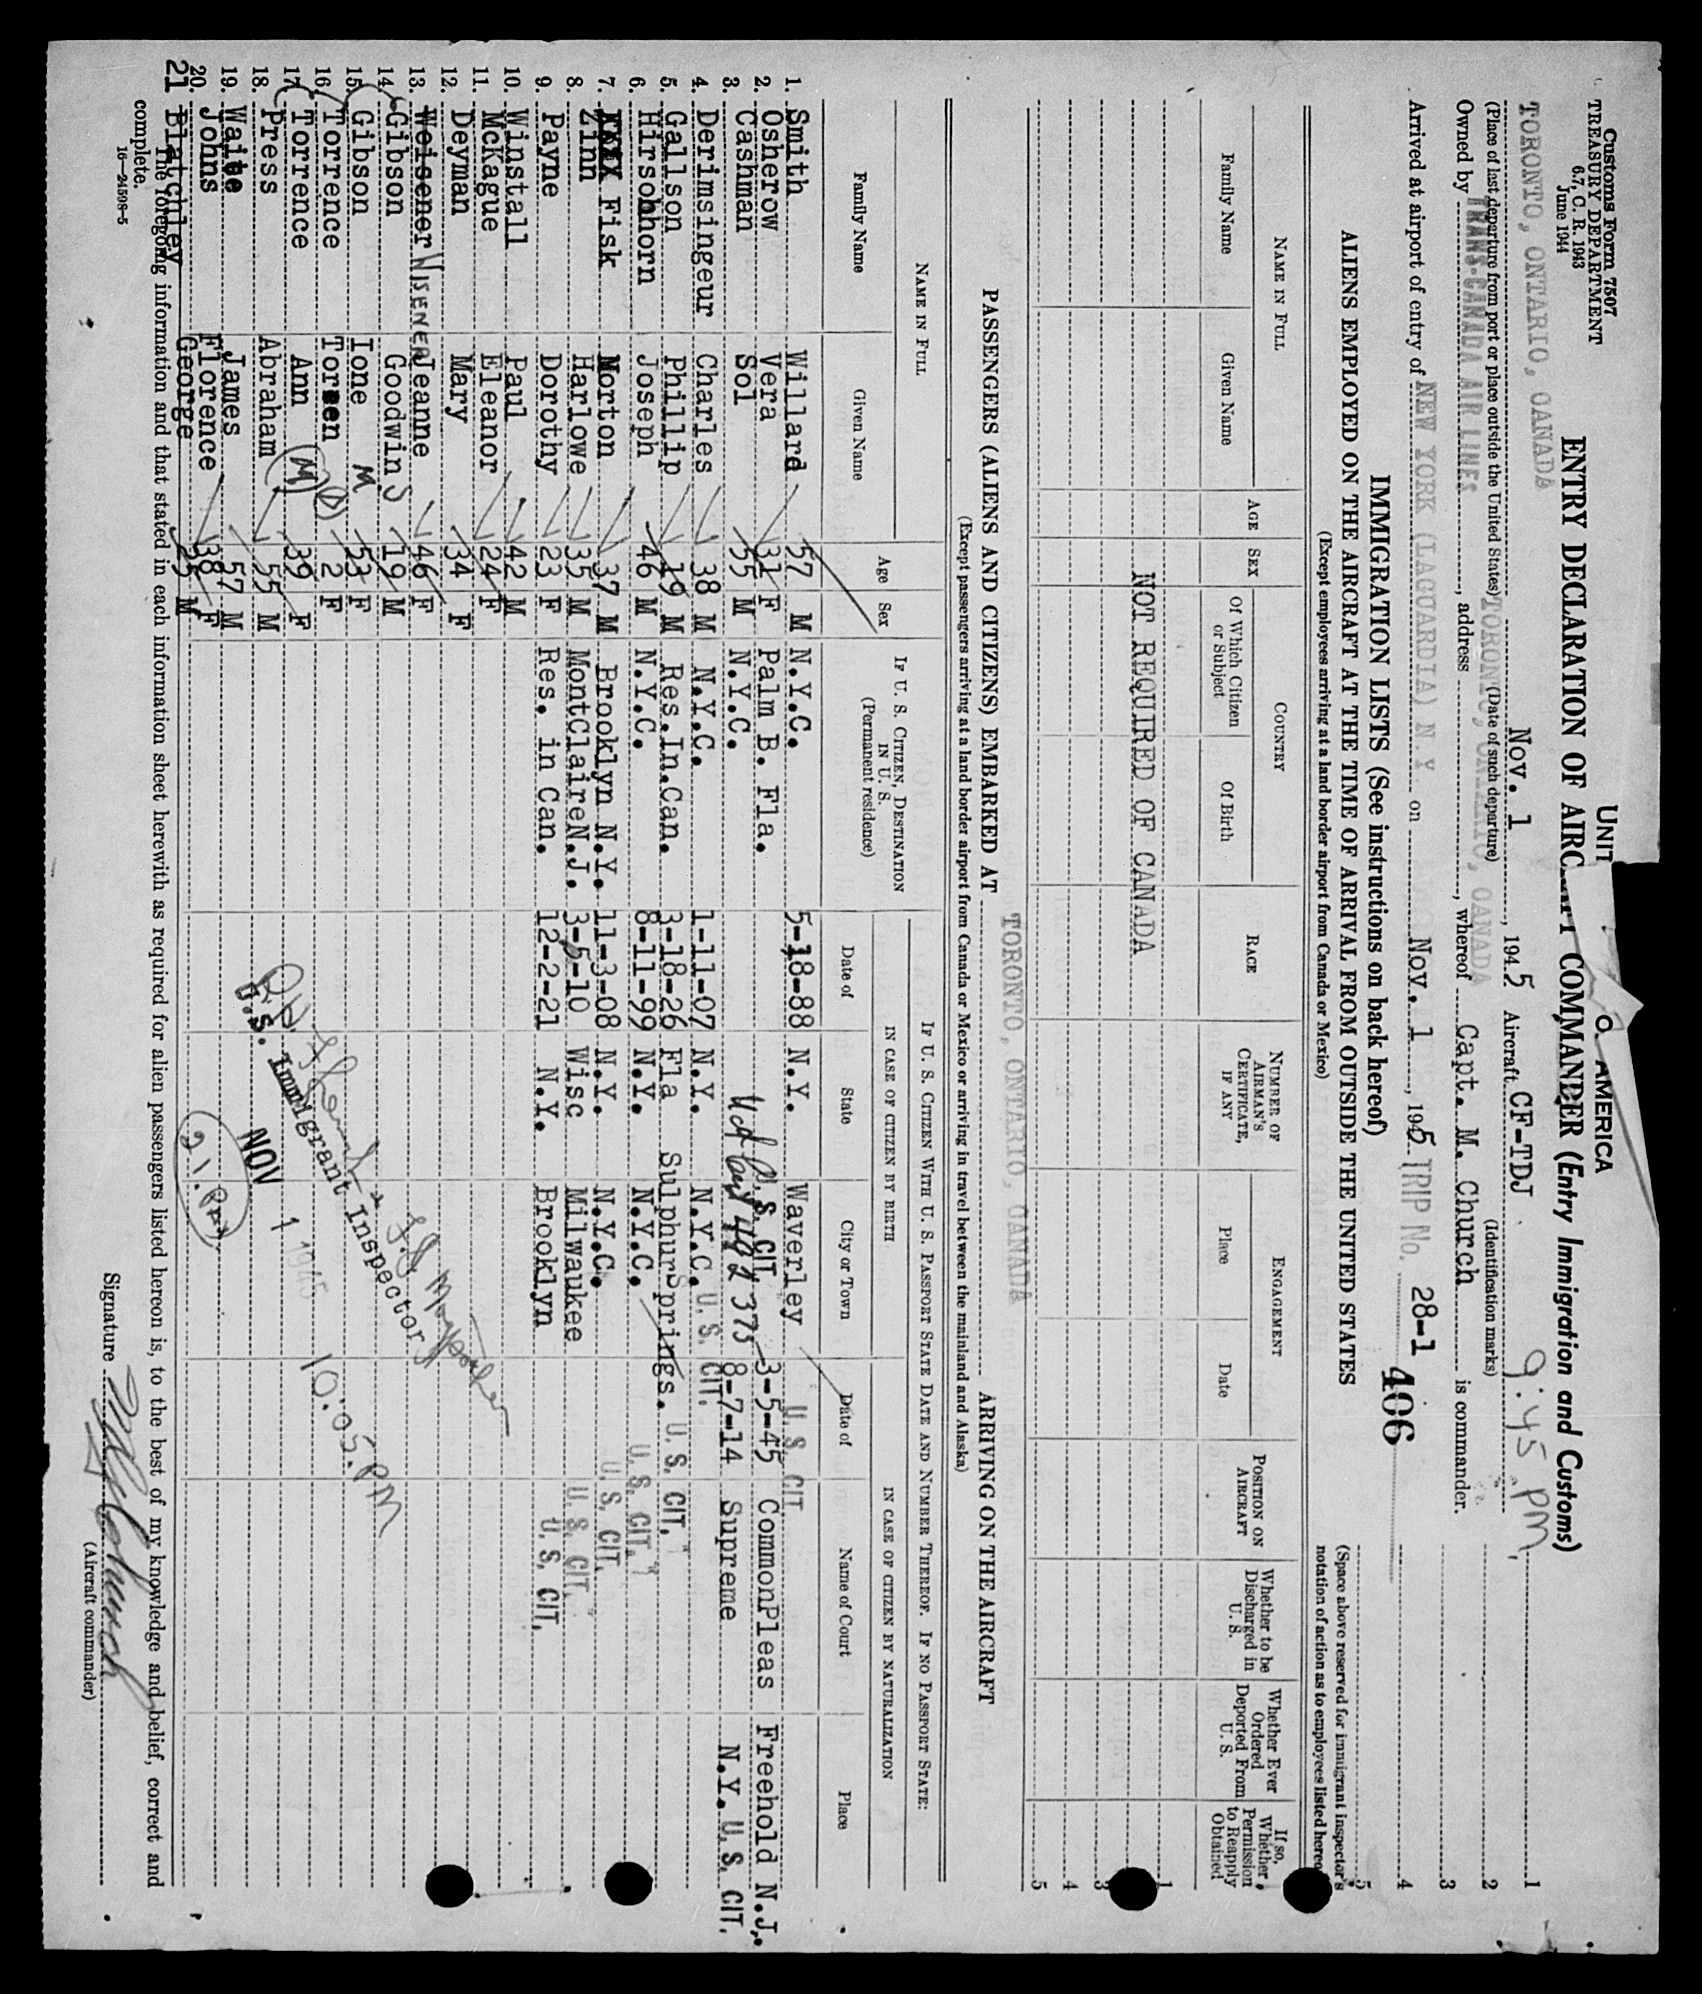 Customs Form 7507
TREASURY DEPARTMENT
6.7, C. R. 1943
June 1944
UNIT
O. AMERICA
ENTRY DECLARATION OF AIRC COMMANDER (Entry Immigration and Customs)
TORONTO, ONTARIO, CANADA Nov. 1, 1945 Aircraft CF-TDJ 9:45 PM.
(Place of last departure from port or place outside the United States) (Date of such departure) (Identification marks)
Owned by TRANS-CANADA AIR LINES, address TORONTO, ONTARIO, CANADA, whereof Capt. M. Church is commander.
Arrived at airport of entry of NEW YORK (LAGUARDIA) N.Y on Nov. 1, 1945 TRIP No. 28-1
406
IMMIGRATION LISTS (See instructions on back hereof)
ALIENS EMPLOYED ON THE AIRCRAFT AT THE TIME OF ARRIVAL FROM OUTSIDE THE UNITED STATES
(Except employees arriving at a land border airport from Canada or Mexico)
1
2
3
4
5
(Space above reserved for immigrant inspector's
notation of action as to employees listed hereo
NAME IN FULL AGE SEX COUNTRY RACE NUMBER OF AIRMAN'S CERTIFICATE, IF ANY ENGAGEMENT POSITION ON AIRCRAFT Whether to be Discharged in U. S. Whether Ever Ordered Deported From U. S. If so, Whether Permission to Reapply Obtained
Family Name Given Name Of Which Citizen or Subject Of Birth Place Date
1
NOT REQUIRED OF CANADA
3
4
5
TORONTO, ONTARIO, CANADA
PASSENGERS (ALIENS AND CITIZENS) EMBARKED AT ARRIVING ON THE AIRCRAFT
(Except passengers arriving at a land border airport from Canada or Mexico or arriving in travel between the mainland and Alaska)
NAME IN FULL IF U. S. CITIZEN, DESTINATION IN U. S. (Permanent residence) IF U. S. CITIZEN WITH U. S. PASSPORT STATE DATE AND NUMBER THEREOF. IF NO PASSPORT STATE:
IN CASE OF CITIZEN BY BIRTH IN CASE OF CITIZEN BY NATURALIZATION
Family Name Given Name Age Sex Date of State City or Town Date of Name of Court Place
1. Smith Willard 57 M N.Y.C. 5-18-88 N.Y. Waverley U. S. CIT.
2. Osherow Vera 31 F Palm B. Fla. U. S. CIT. 3-5-45 CommonPleas Freehold N.J.
3. Cashman Sol 55 M N.Y.C. 8-7-14 Supreme N.Y. U. S. CIT.
4. Derimsingeur Charles 38 M N.Y.C. 1-11-07 N.Y. N.Y.C. U. S. CIT.
5. Gallson Phillip 19 M Res.In.Can. 3-18-26 Fla SulphurSprings. U. S. CIT.
6. Hirsohhorn Joseph 46 M N.Y.C. 8-11-99 N.Y. N.Y.C. U. S. CIT.
7. Fisk Morton 37 M Brooklyn N.Y. 11-3-08 N.Y. N.Y.C. U. S. CIT.
8. Zinn Harlowe 35 M MontClaireN.J. 3-5-10 Wisc Milwaukee U. S. CIT.
9. Payne Dorothy 23 F Res. in Can. 12-2-21 N.Y. Brooklyn U. S. CIT.
10. Winstall Paul 42 M
11. McKague Eleanor 24 F
12. Deyman Mary 34 F
13. Weisener WISENER Jeanne 46 F
14. Gibson Goodwin S 19 M
15. Gibson Ione M 53 F
16. Torrence Toreen (D) 2 F
17. Torrence Ann (M) 39 F
18. Press Abraham 55 M
19. Waite James 57 M
20. Johns Florence 38 F
21 Blatchley George 25 M
U.S. Immigrant Inspector
NOV 1 1945
10:05 PM
The foregoing information and that stated in each information sheet herewith as required for alien passengers listed hereon is, to the best of my knowledge and belief, correct and
complete.
16—24508-5
Signature
(Aircraft commander)